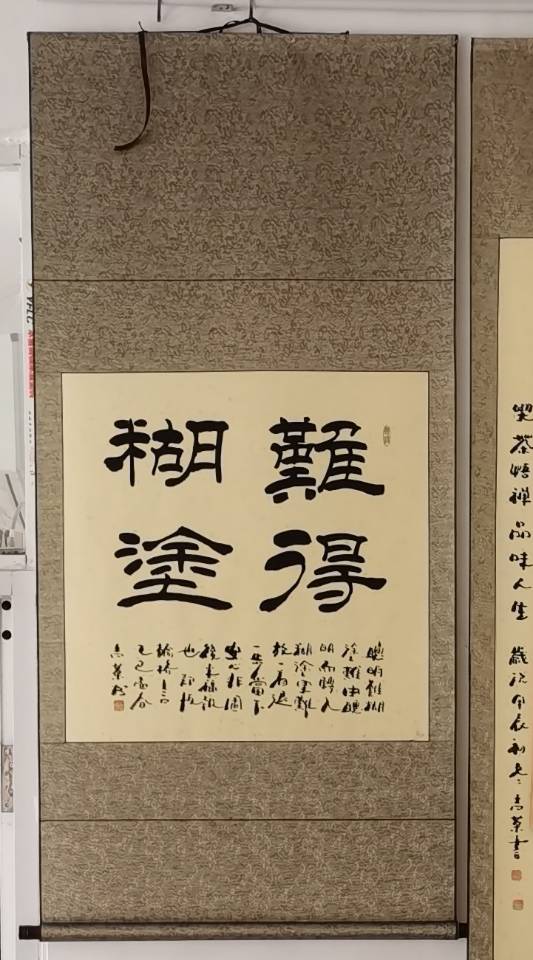 難得
糊塗
聰明難糊
塗難由聰
明而轉入
糊塗更難
放一着退
一步當下
安心非圖
後來福報
也 鄭板
乙巳孟春
喫茶悟禪 品味人生 歲次甲辰初冬